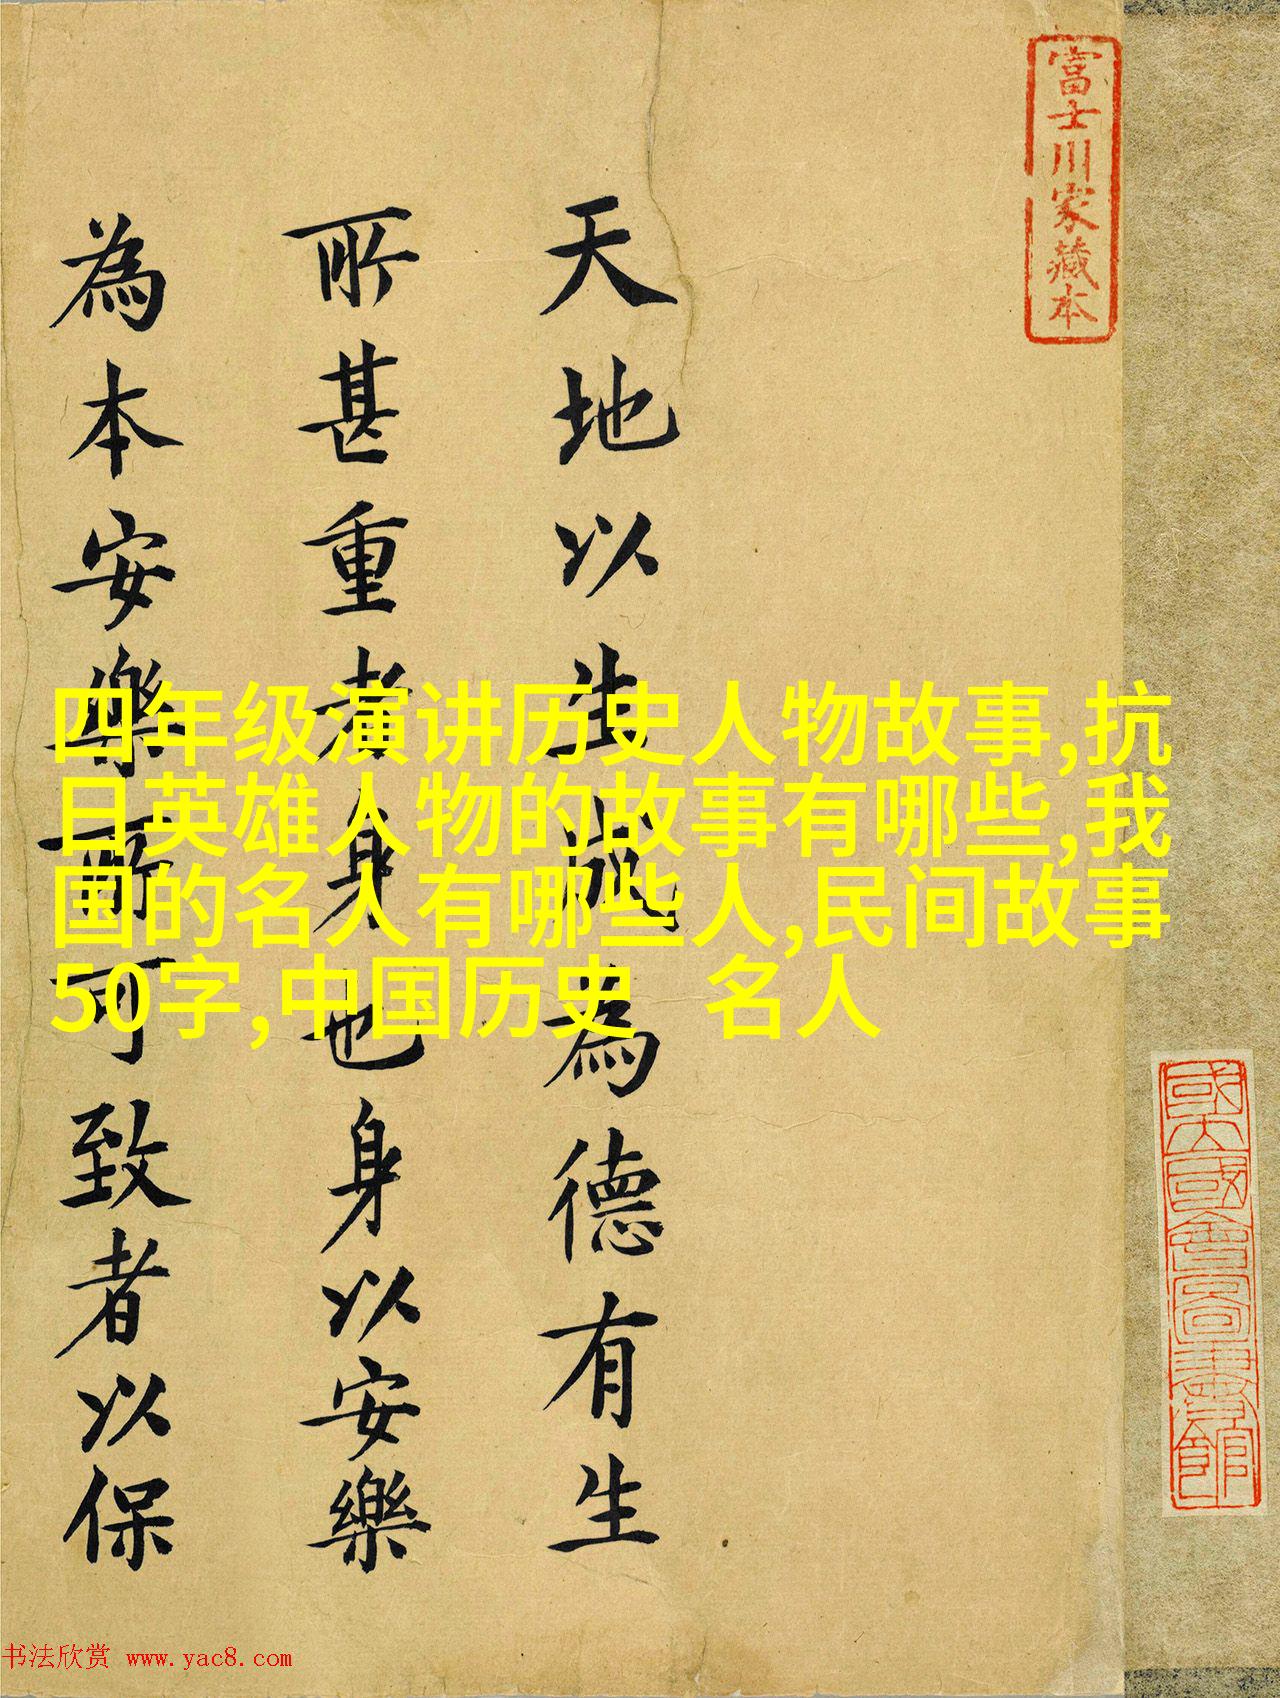 富士川家藏本
天地以生成為德有生
所甚重者身也身以安樂
為本安樂所可致者以保
四年级演讲历史人物故事,抗
日英雄人物的故事有哪些,我
国的名人有哪些人,民间故事
50字,中国历史 名人
國立國會圖書館
书法欣赏 www.yac8.com